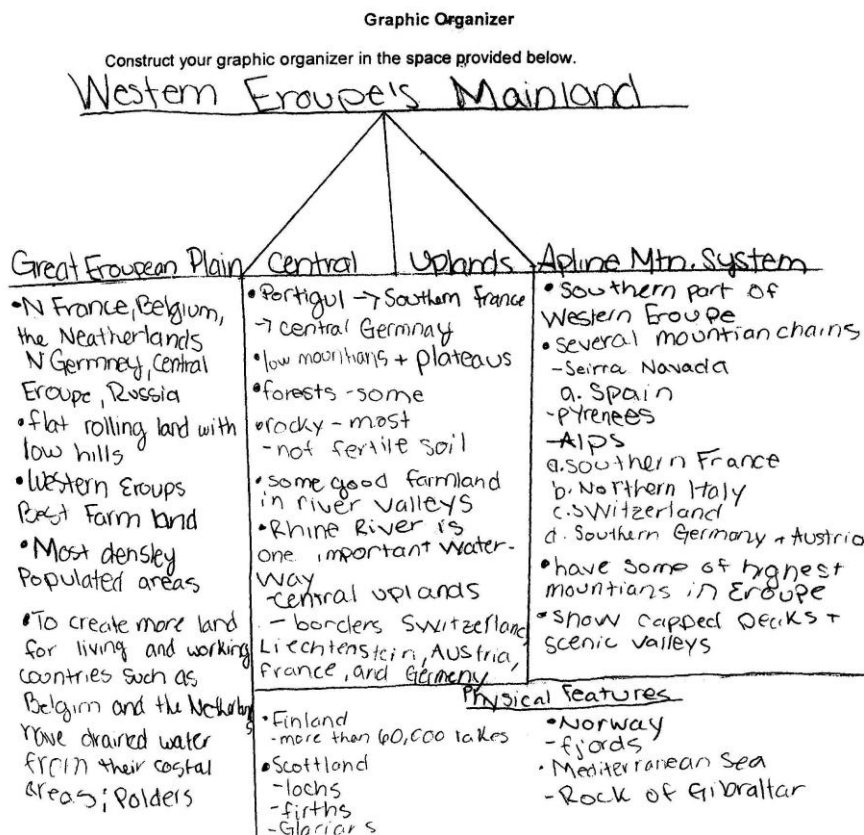 Graphic Organizer
Construct your graphic organizer in the space provided below.
Western Eroupe's Mainland
Great Eroupean Plain
•N France, Belgium,
the Neatherlands
N Germney, Central
Eroupe, Russia
•flat rolling land with
low hills
•Western Eroups
Best Farm land
•Most densley
Populated areas
•To create more land
for living and working
countries such as
Belgim and the Netherlands
have drained water
from their costal
areas; Polders
Central Uplands
•Portigul → Southern France
→ central Germnay
•low mountians + plateaus
•forests - some
•rocky - most
- not fertile soil
•some good farmland
in river valleys
•Rhine River is
one important water-
way
-central uplands
- borders Switzerland,
Liechtenstein, Austria,
France, and Germeny
Apline Mtn. System
•Southern part of
Western Eroupe
•several mountian chains
-Seirra Navada
a. Spain
-pyrenees
-Alps
a. southern France
b. Northern Italy
c. Switzerland
d. Southern Germany + Austria
•have some of highest
mountians in Eroupe
•snow capped peaks +
scenic valleys
Physical Features
•Finland
-more than 60,000 lakes
•Scottland
-lochs
-firths
-Glaciars
•Norway
-fjords
•Mediterranean Sea
-Rock of Gibraltar